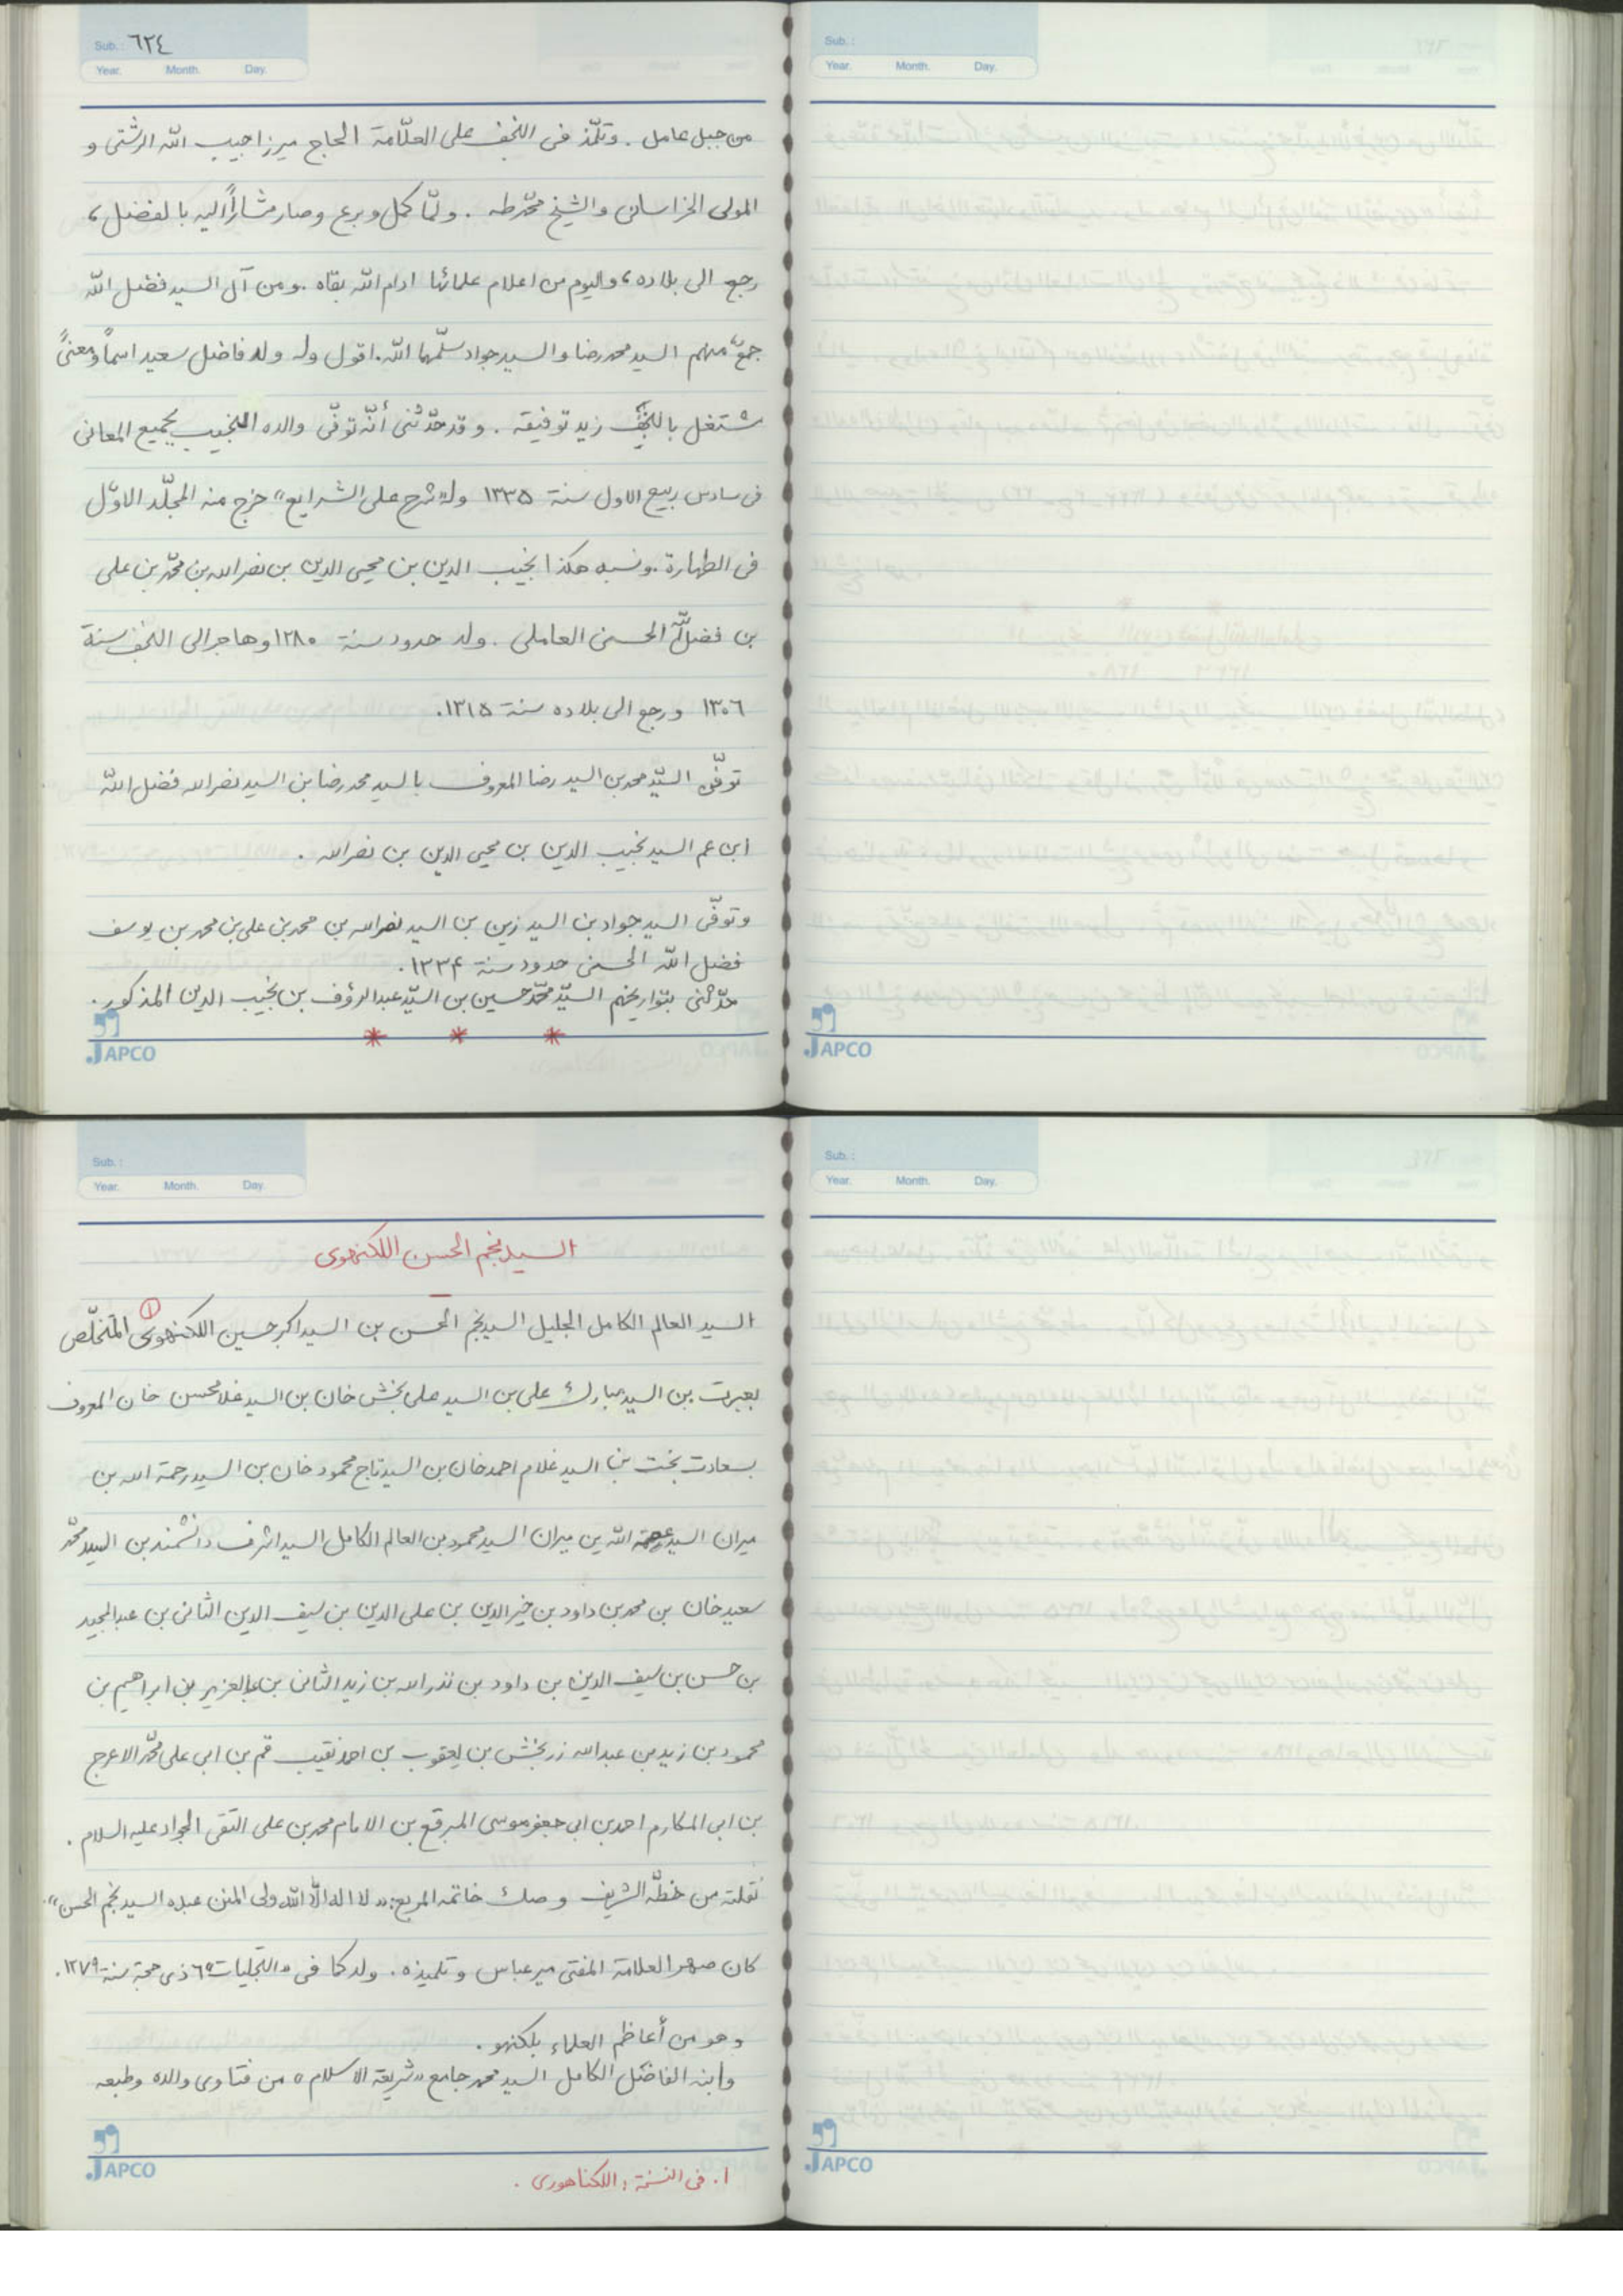 Sub.: ٦٢٤
Year. Month. Day.
من جبل عامل . وتلمّذ فی النجف علی العلّامة الحاج میرزا حبیب الله الرشتی و
المولی الخراسانی والشیخ محمّد طه . ولمّا کمل وبرع وصار مشاراً الیه بالفضل ،
رجع الی بلاده ، والیوم من اعلام علمائها ادام الله بقاه . ومن آل السید فضل الله
جمعٌ منهم السید محمد رضا والسید جواد سلّمهما الله . اقول وله ولد فاضل سعید اسماً ومعنیً
یشتغل بالنجف زید توفیقه . وقد حدّثنی أنّه توفّی والده النجیب بجمیع المعانی
فی سادس ربیع الاول سنة ١٣٣٥ وله «شرح علی الشرایع» خرج منه المجلّد الاوّل
فی الطهارة . ونسبه هکذا نجیب الدین بن محیی الدین بن نصرالله بن محمّد بن علی
بن فضل الله الحسنی العاملی . ولد حدود سنة ١٢٨٠ وهاجر الی النجف سنة
١٣٠٦ ورجع الی بلاده سنة ١٣١٥.
توفّی السیّد محمد بن السید رضا المعروف بالسید محمد رضا بن السید نصرالله فضل الله
ابن عم السید نجیب الدین بن محیی الدین بن نصرالله .
وتوفّی السید جواد بن السید زین بن السید نصرالله بن محمد بن علی بن محمد بن یوسف
فضل الله الحسنی حدود سنة ١٣٣۴.
حدّثنی بتواریخهم السیّد محمّد حسین بن السیّد عبدالرؤف بن نجیب الدین المذکور.
* * *
JAPCO
Sub.:
Year. Month. Day.
JAPCO
Sub.:
Year. Month. Day.
السید نجم الحسن اللکنهوی
السید العالم الکامل الجلیل السید نجم الحسن بن السید اکبر حسین اللکنهوی (١) المتخلّص
بعبرت بن السید مبارک علی بن السید علی بخش خان بن السید غلام محسن خان المعروف
بسعادت بخت بن السید غلام احمد خان بن السید تاج محمود خان بن السید رحمة الله بن
میران السید الله بن میران السید محمود بن العالم الکامل السید اشرف دانشمند بن السید محمّد
سعید خان بن محمد بن داود بن خیر الدین بن علی الدین بن سیف الدین الثانی بن عبدالمجید
بن حسن بن سیف الدین بن داود بن نذر الله بن زید الثانی بن عبدالعزیز بن ابراهیم بن
محمود بن زید بن عبدالله زربخش بن یعقوب بن احمد نقیب قم بن ابی علی محمّد الاعرج
بن ابی المکارم احمد بن ابی جعفر موسی المبرقع بن الامام محمد بن علی التقی الجواد علیه السلام .
نقلته من خطّه الشریف وصک خاتمه المربع: «لا اله الّا الله ولی المنن عبده السید نجم الحسن».
کان صهر العلامة المفتی میر عباس وتلمیذه . ولد کما فی «التجلیات» ٦ ذی حجة سنة ١٢٧٩.
وهو من أعاظم العلماء بلکنهو .
وابنه الفاضل الکامل السید محمد جامع «شریعة الاسلام» من فتاوی والده وطبعه
JAPCO
١. فی النسخة: اللکناهوری .
Sub.:
Year. Month. Day.
JAPCO